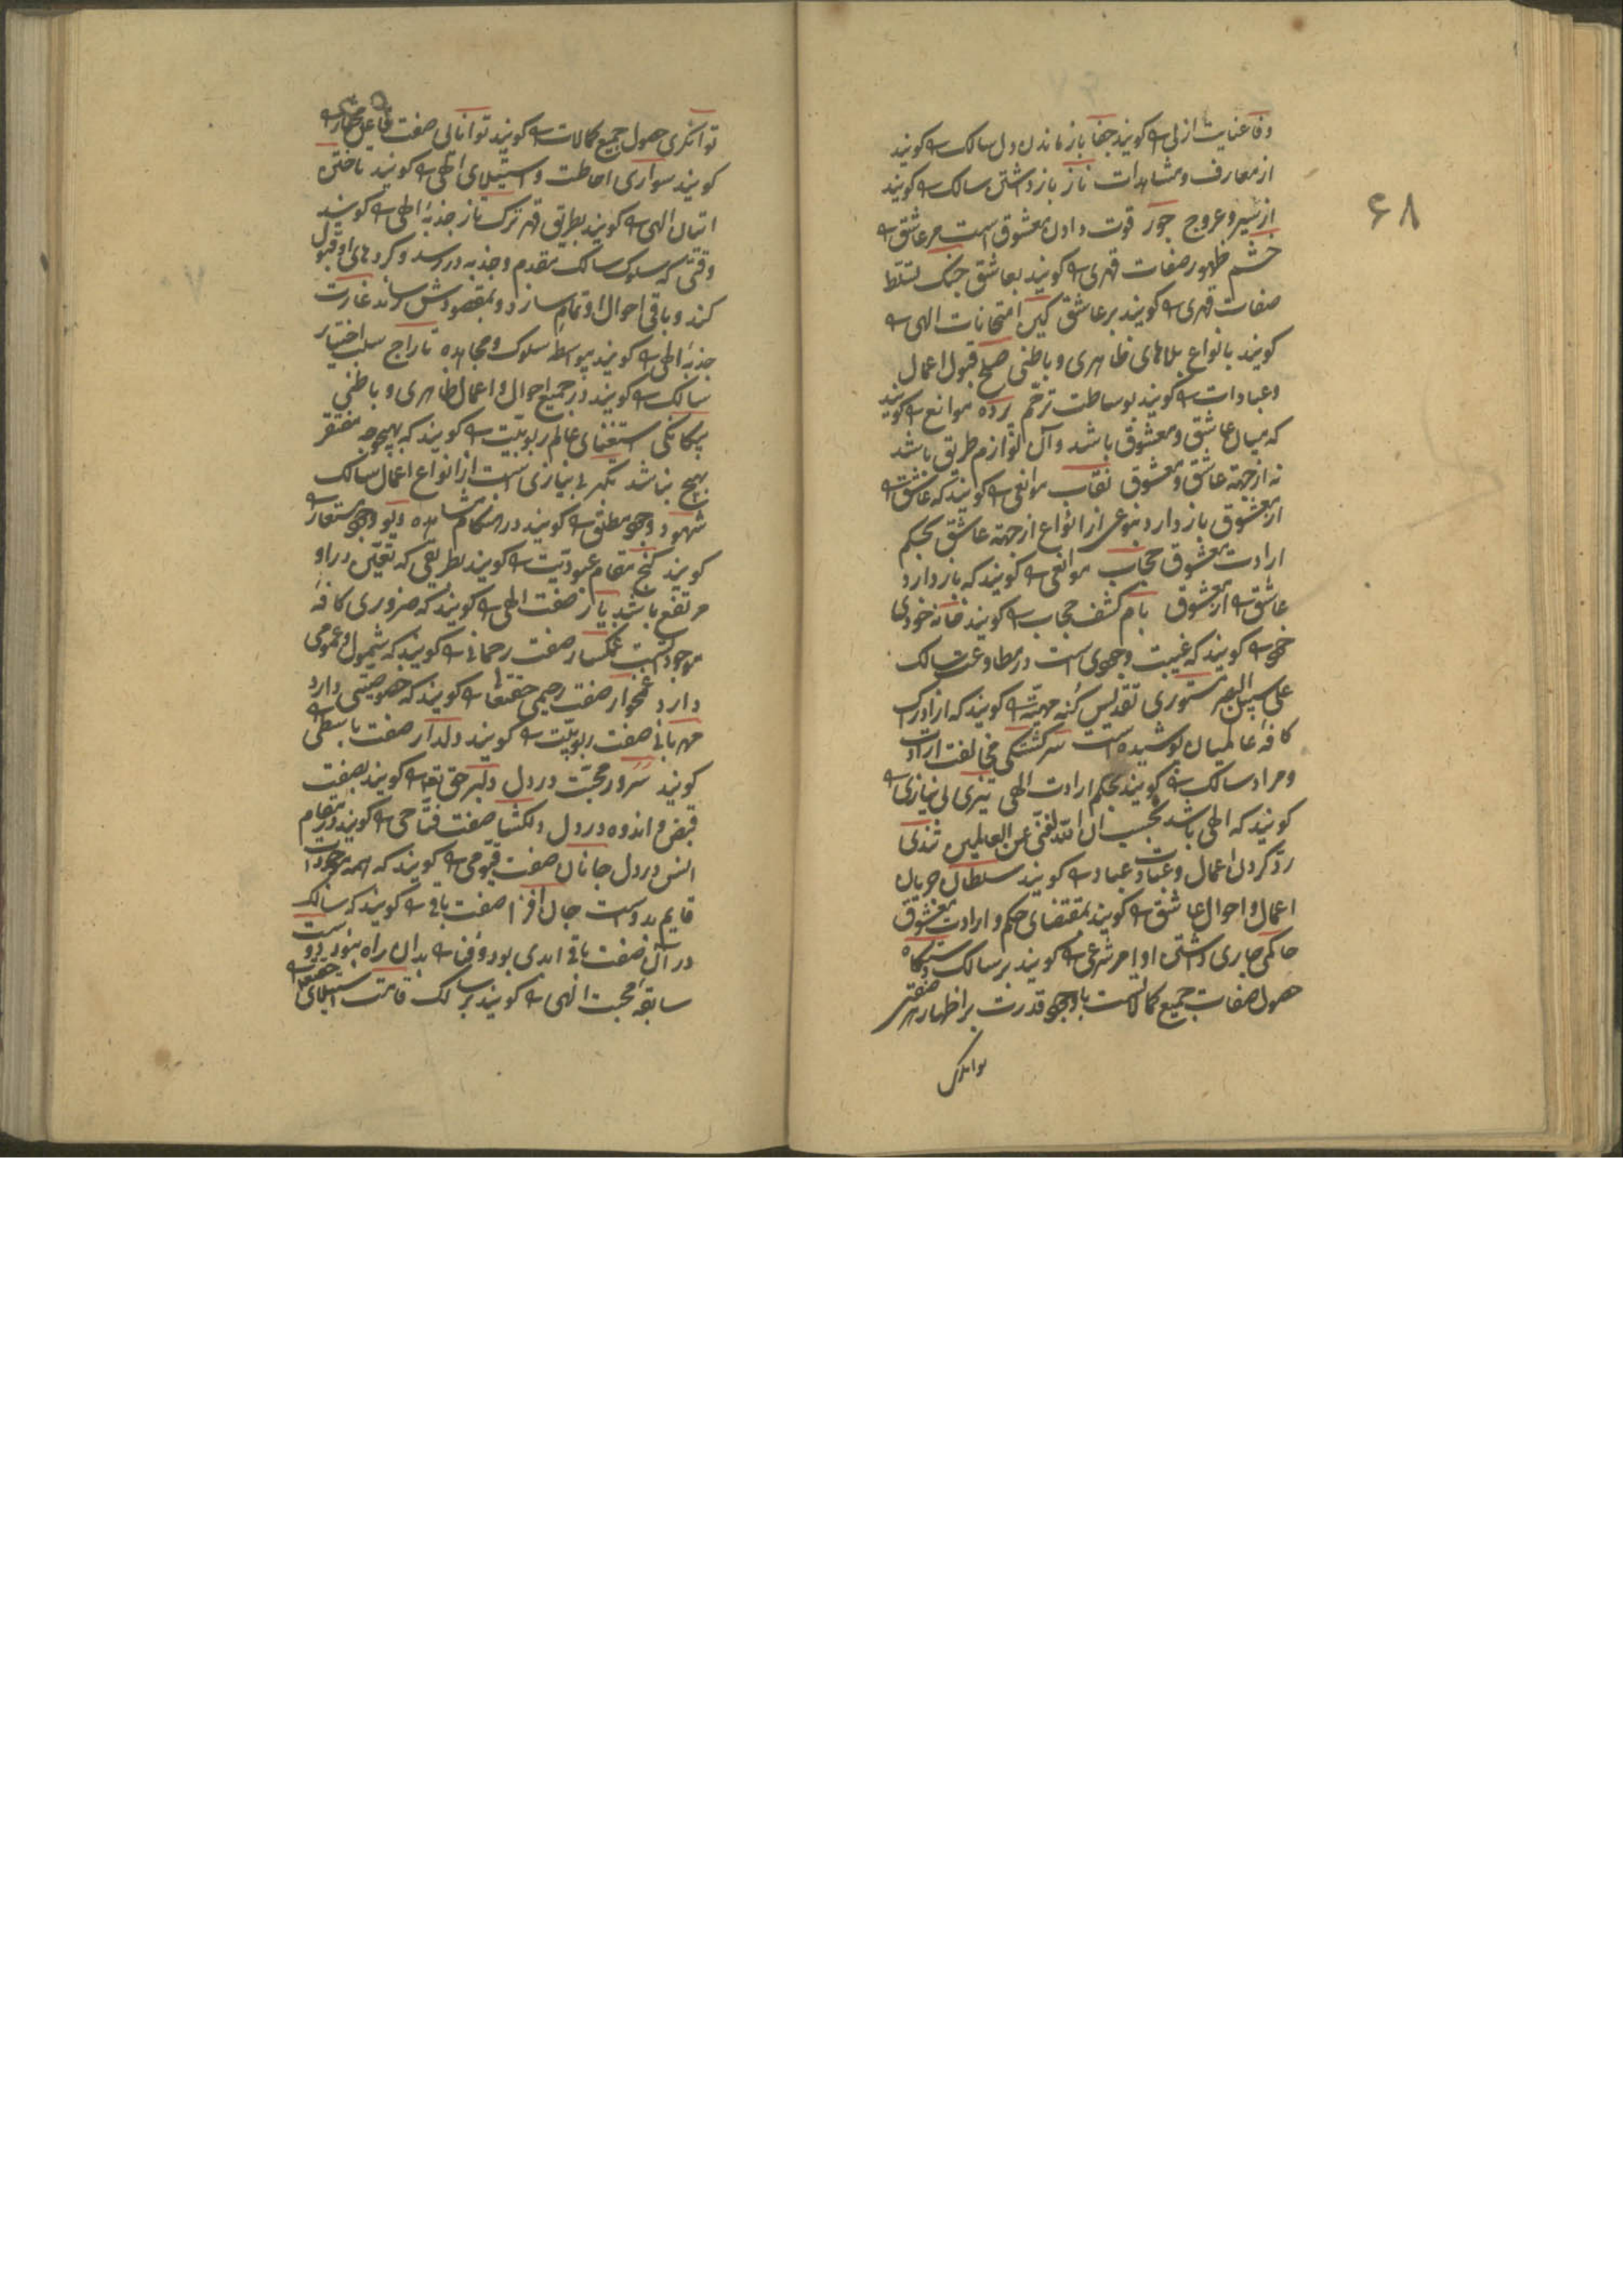 ۶۸
وفا عنایت ازلی را کویند جفا باز ماندن دل سالک را کویند
از معارف و مشاهدات ناز باز داشتن سالک را کویند
از سیر و عروج جور قوت دادن معشوق است مر عاشق را
خشم ظهور صفات قهری را کویند بعاشق جنک تسلط
صفات قهری را کویند بر عاشق کین امتحانات الهی را
کویند بانواع بلاهای ظاهری و باطنی صلح قبول اعمال
و عبادات را کویند بوساطت ترحم پرده موانع را کویند
که میان عاشق و معشوق باشد و آن لوازم طریق باشد
نه از جهة عاشق و معشوق نقاب موانعی را کویند که عاشق را
از معشوق باز دارد بنوعی از انواع از جهة عاشق بحکم
ارادت معشوق حجاب موانعی را کویند که باز دارد
عاشق را از معشوق بام کشف حجاب را کویند خانه خودی
خود را کویند که غیبت وجودی است در مطاوعت سالک
علی سبیل البصر مستوری تقدیس کنه مهیّت را کویند که از ادراک
کافهٔ عالمیان پوشیده است سرکشتکی مخالفت ارادت
و مراد سالک را کویند بحکم ارادت الهی تیزی بی نیازی را
کویند که الهی باشد بحسب ان الله لغنی عن العالمین تندی
رد کردن اعمال و عبادت عباد را کویند سلطان جریان
اعمال و احوال عاشق را کویند بمقتضای حکم و ارادت معشوق
حاکمی جاری داشتن اوامر شرعی را کویند بر سالک دستکاه
حصول صفات جمیع کمالاتست باوجود قدرت بر اظهار هر صفتی
توانکری
توانکری حصول جمیع کمالات را کویند توانائی صفت فاعل مختار را
کویند سواری احاطت و استیلای الهی را کویند تاختن
اتیان الهی را کویند بطریق قهر ترک تاز جذبهٔ الهی را کویند
وقتی که سلوک سالک مقدم و جذبه در رسد و کردهای او قبول
کند و باقی احوال او تمام سازد و بمقصودش رساند غارت
جذبهٔ الهی را کویند بواسطه سلوک و مجاهده تاراج سلب اختیار
سالک را کویند در جمیع احوال و اعمال ظاهری و باطنی
بیکانکی استغنای عالم ربوبیت را کویند که بهیچوجه مفتقر
بهیچ نباشد تکبر بی نیازی است از انواع اعمال سالک
شهود وجود مطلق را کویند در هنکام مشاهده دیو وجود مستعار را
کویند کنج مقام عبودیت را کویند بطریقی که تعین در او
مرتفع باشد یار صفت الهی را کویند که ضروری کافهٔ
موجوداتست غمکسار صفت رحمانی را کویند که شمول و عمومی
دارد غمخوار صفت رحیمی حقتعالی را کویند که خصوصیتی دارد
مهربانی صفت ربوبیت را کویند دلدار صفت باسطی را
کویند سرور محبت در دل دلبر حق تعالی را کویند بصفت
قبض و اندوه در دل دلکشا صفت فتاحی را کویند در مقام
انس در دل جانان صفت قیومی را کویند که همه موجودات
قایم بدوست جان افزا صفت باقی را کویند که سالک
در آن صفت باقی ابدی بود و فنا را بدان راه نبود دوست
سابقهٔ محبت الهی را کویند بر سالک قامت استیلای حقتعالی را